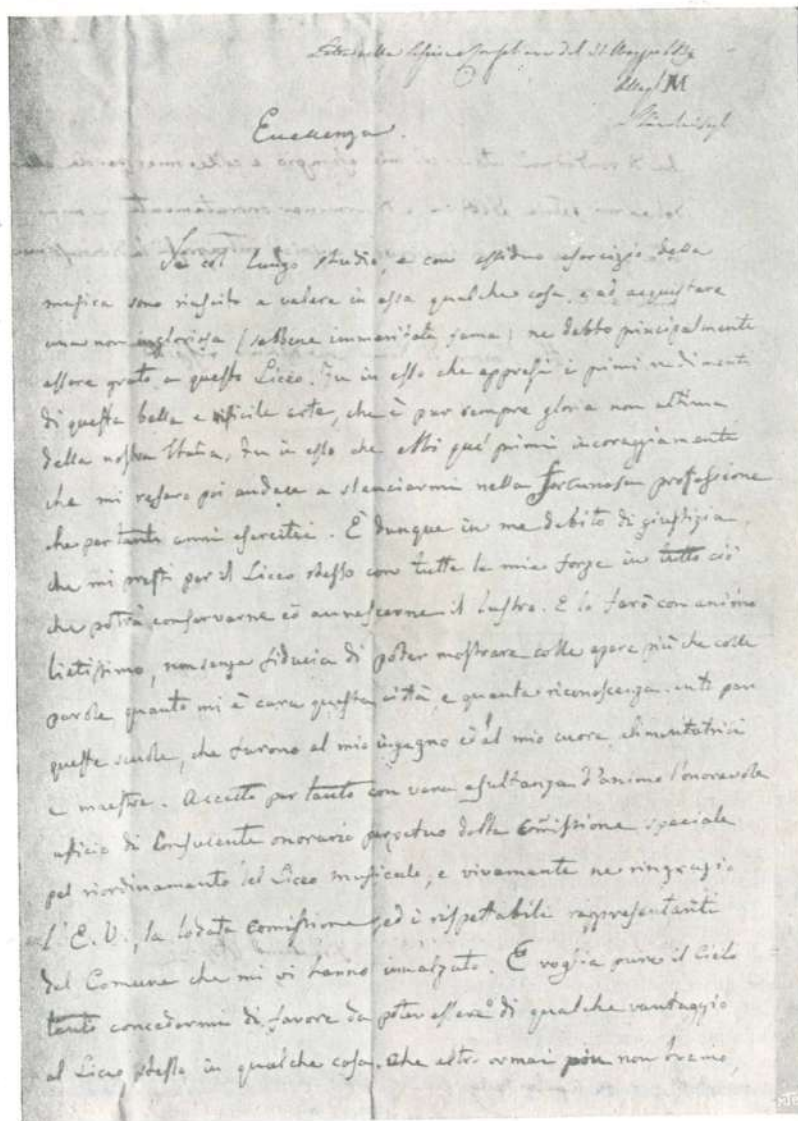 Letta nella Sessione Consigliare del 31 Maggio 1839
Alleg. M
Eccellenza.
Se col lungo studio, e con assiduo esercizio della
musica sono riuscito a valere in essa qualche cosa, e ad acquistare
una non ingloriosa (sebbene immeritata fama) ne debbo principalmente
essere grato a questo Liceo. Fu in esso che appresi i primi rudimenti
di questa bella e difficile arte, che è pur sempre gloria non ultima
della nostra Italia, fu in esso che ebbi que' primi incoraggiamenti
che mi resero poi audace a slanciarmi nella fortunosa professione
che per tanti anni esercitai. È dunque in me debito di giustizia
che mi presti per il Liceo stesso con tutte le mie forze in tutto ciò
che potrà conservarne ed accrescerne il lustro. E lo farò con animo
lietissimo, non senza fiducia di poter mostrare colle opere più che colle
parole quanto mi è cara questa città, e quanta riconoscenza senti per
queste scuole, che furono al mio ingegno ed al mio cuore alimentatrici
e maestre. Accetto per tanto con vera esultanza d'animo l'onorevole
uficio di Consulente onorario perpetuo della Comissione speciale
pel riordinamento del Liceo musicale, e vivamente ne ringrazio
l'E. V., la lodata Comissione, ed i rispettabili rappresentanti
del Comune che mi vi hanno innalzato. E voglia pure il Cielo
tanto concedermi di favore da poter essere di qualche vantaggio
al Liceo stesso in qualche cosa, che altro ormai più non bramo,